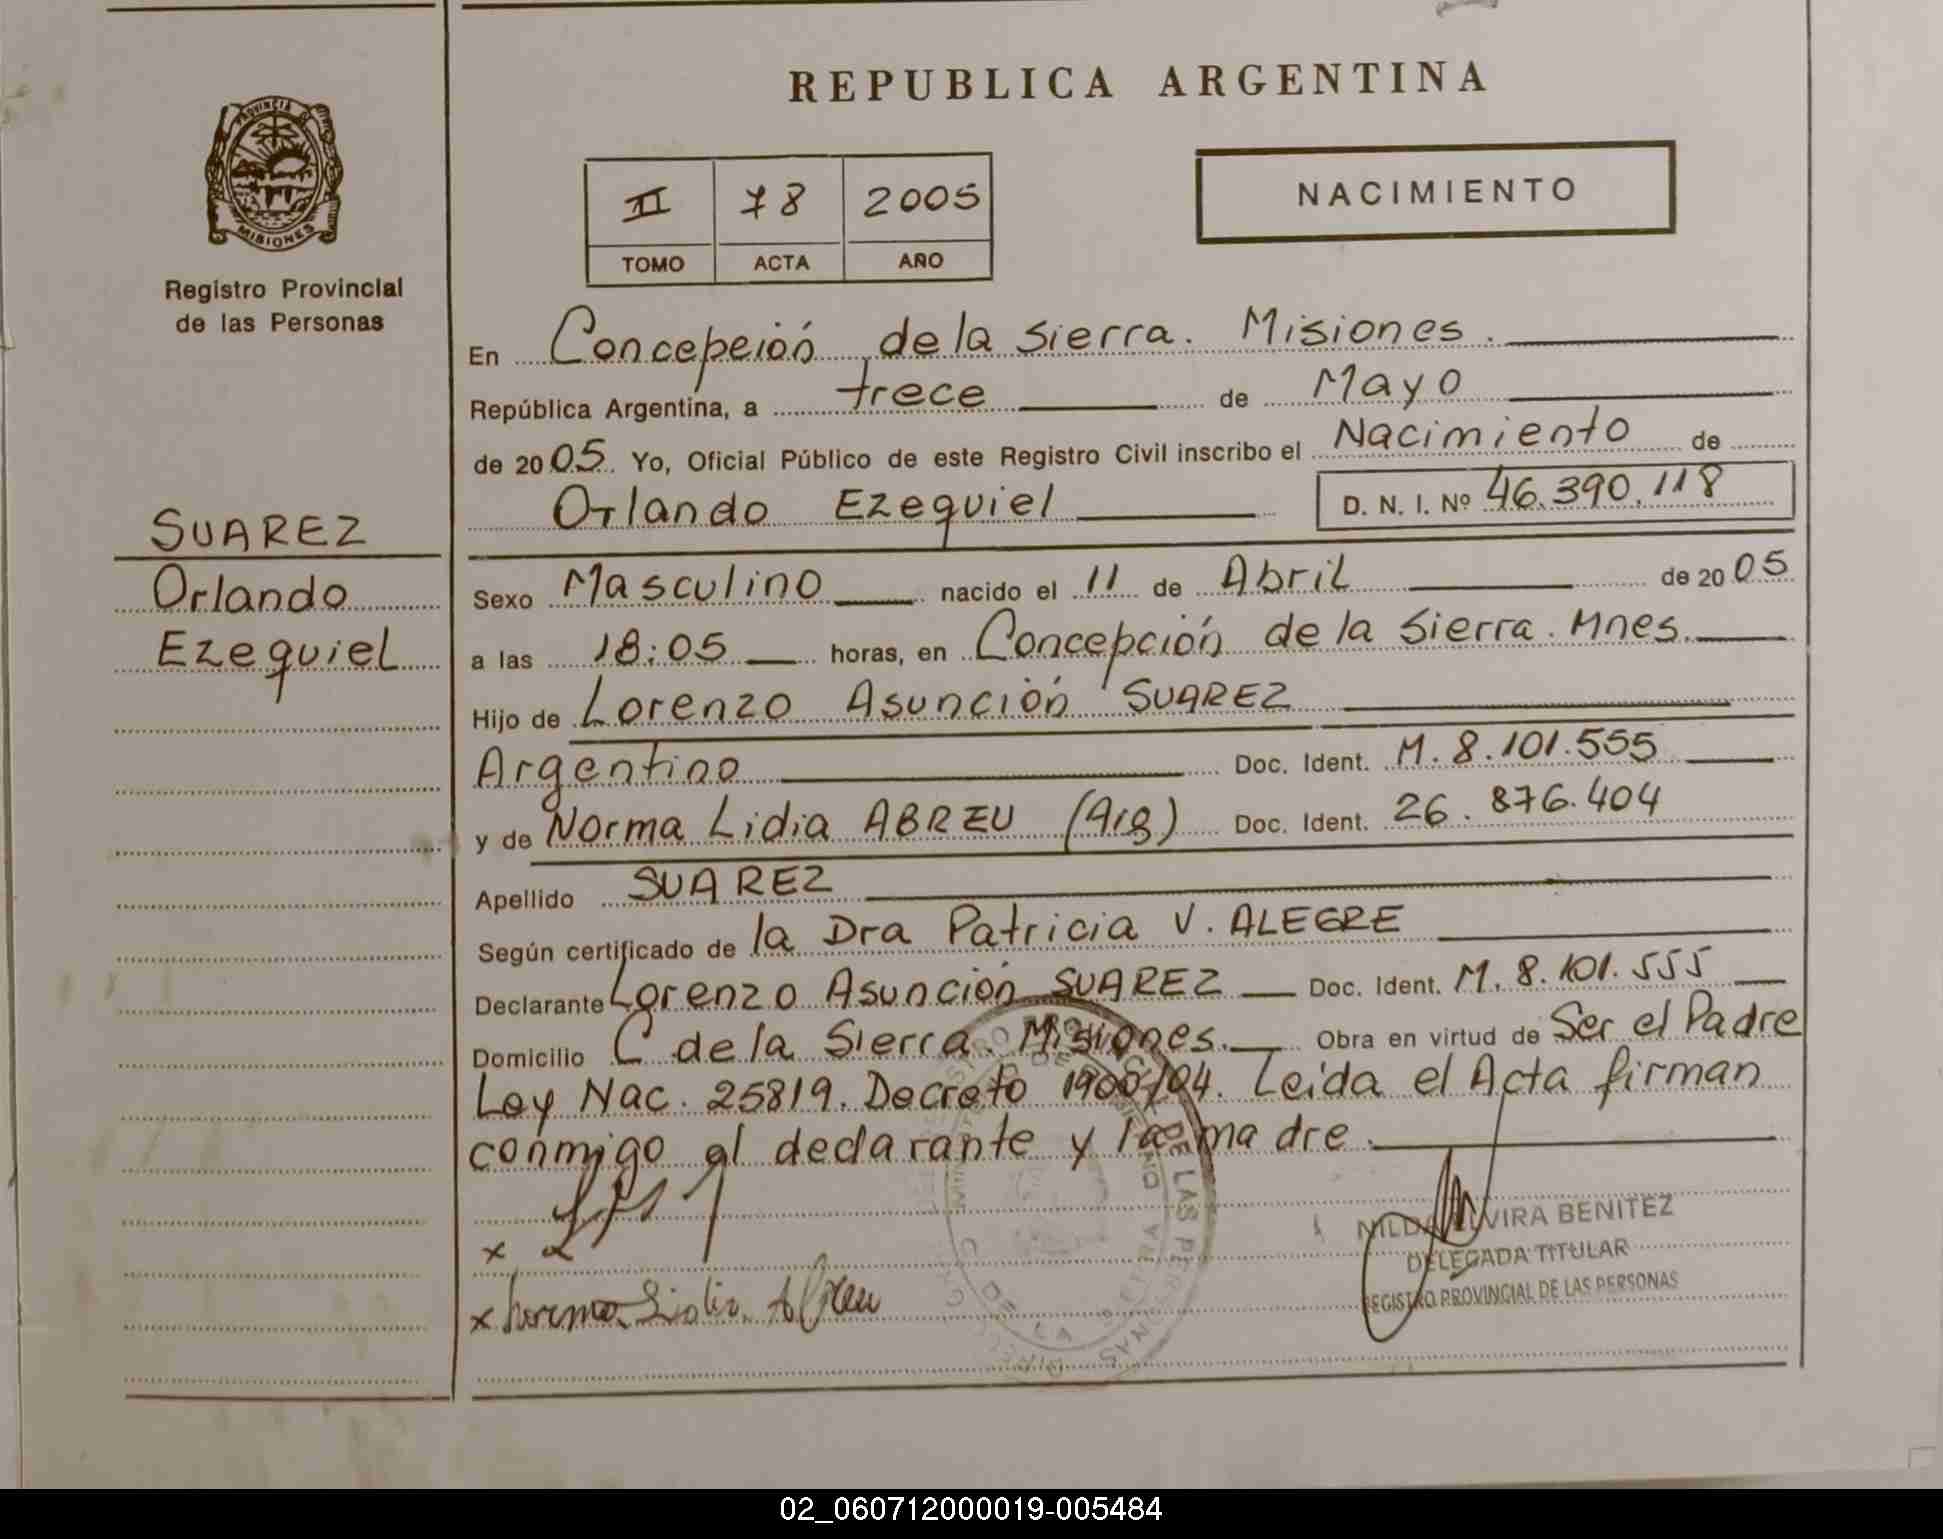 REPUBLICA ARGENTINA
PROVINCIA D
MISIONES
Registro Provincial
de las Personas
II 78 2005
TOMO ACTA AÑO
NACIMIENTO
SUAREZ
Orlando
Ezequiel
En Concepción de la Sierra. Misiones.
República Argentina, a trece de Mayo
de 2005 Yo, Oficial Público de este Registro Civil inscribo el Nacimiento de
Orlando Ezequiel D. N. I. Nº 46.390.118
Sexo Masculino nacido el 11 de Abril de 2005
a las 18:05 horas, en Concepción de la Sierra. Mnes.
Hijo de Lorenzo Asunción SUAREZ
Argentino Doc. Ident. M. 8.101.555
y de Norma Lidia ABREU (Arg) Doc. Ident. 26.876.404
Apellido SUAREZ
Según certificado de la Dra Patricia V. ALEGRE
Declarante Lorenzo Asunción SUAREZ Doc. Ident. M. 8.101.555
Domicilio C de la Sierra. Misiones. Obra en virtud de Ser el Padre
Ley Nac. 25819. Decreto 1908/04. Leida el Acta firman
conmigo el declarante y la madre.
x
x Norma Lidia Abreu
NILDA ELVIRA BENITEZ
DELEGADA TITULAR
REGISTRO PROVINCIAL DE LAS PERSONAS
DE LAS PERSONAS
C. DE LA SIERRA
02_060712000019-005484